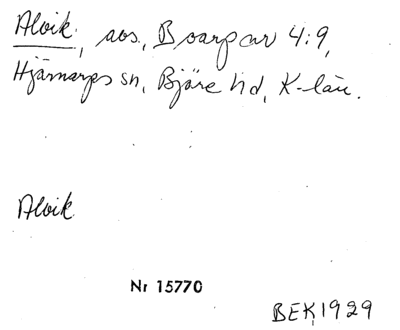 Alvik, aos, Boarp ar 4:9,
Hjärnarps sn, Bjäre hd, K-län.
Alvik
Nr 15770
BEK 1929